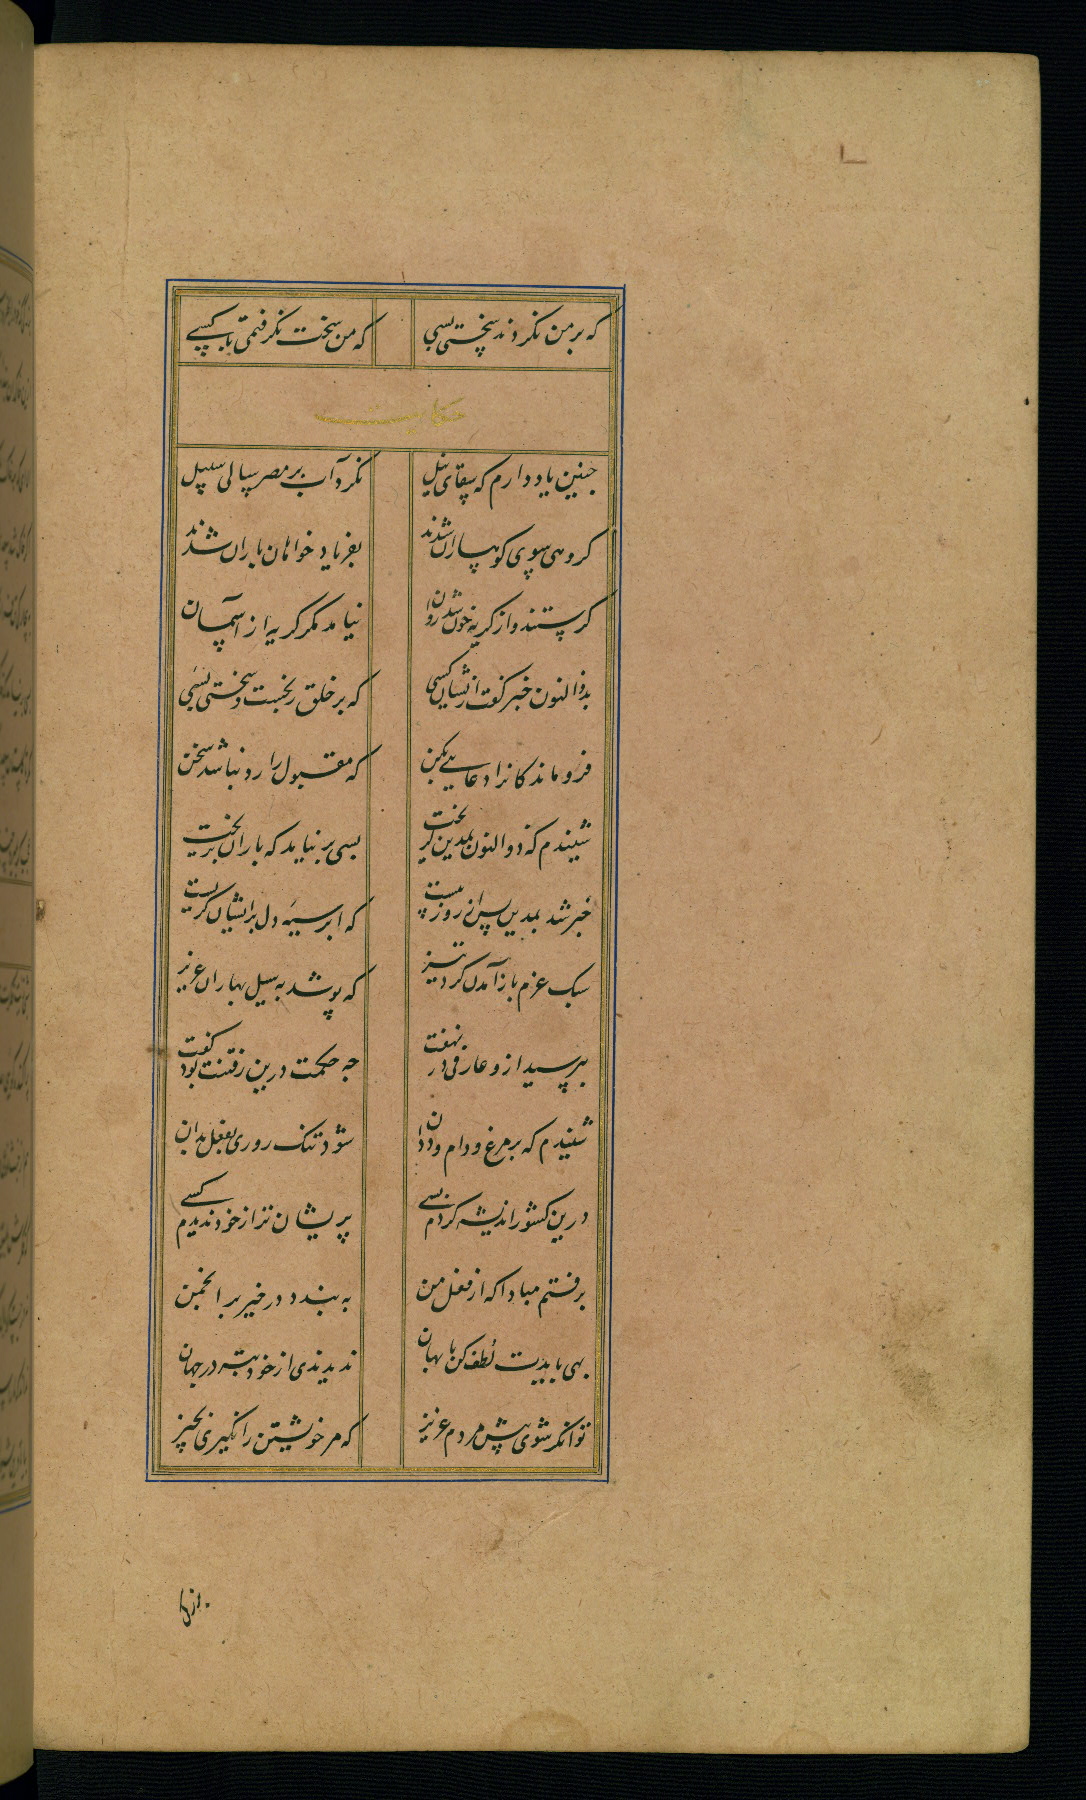 که بر من نکردند سختی بسی که من سخت نکرفتمی با کسی
حکایت
چنین یاد دارم که سقای نیل نکرد آب بر مصر سالی سبیل
کروهی سوی کوهساران شدند بفریاد خواهان باران شدند
کرستند و از کریه خون شد روان نیامد مکر کریه از آسمان
بذوالنون خبر کفت ازیشان کسی که بر خلق رنجست و سختی بسی
فروماندکانرا دعایی بکن که مقبول را رد نباشد سخن
شنیدم که ذوالنون بمدین کریخت بسی بر نیامد که باران بریخت
خبر شد بمدین پس از روز بیست که ابر سیه دل برایشان کریست
سبک عزم باز آمدن کرد تیز که پر شد به سیل بهاران عزیز
بپرسید ازو عارفی در نهفت چه حکمت درین رفتنت بود کفت
شنیدم که بر مرغ و دام و ددان شود تنک روزی بفعل بدان
درین کشور اندیشه کردم بسی پریشان تر از خود ندیدم کسی
برفتم مبادا که از فعل من به بندد در خیر بر انجمن
بهی بایدت لطف کن با بهان ندیدندی از خود بتر در جهان
توانکر شوی پیش مردم عزیز که مر خویشتن را نکیری بچیز